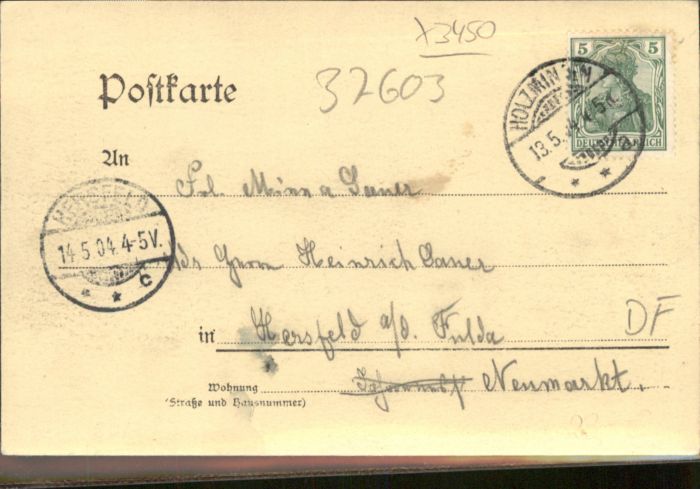 x3450
32603
5 5
DEUTSCHES REICH
HOLZMINDEN
13.5.04.4-5
Postkarte
An
Frl. Minna Sauer
Herrn Heinrich Sauer
14.5.04.4-5V.
c
in Hersfeld a/d. Fulda
DF
Wohnung Neumarkt.
(Straße und Hausnummer)